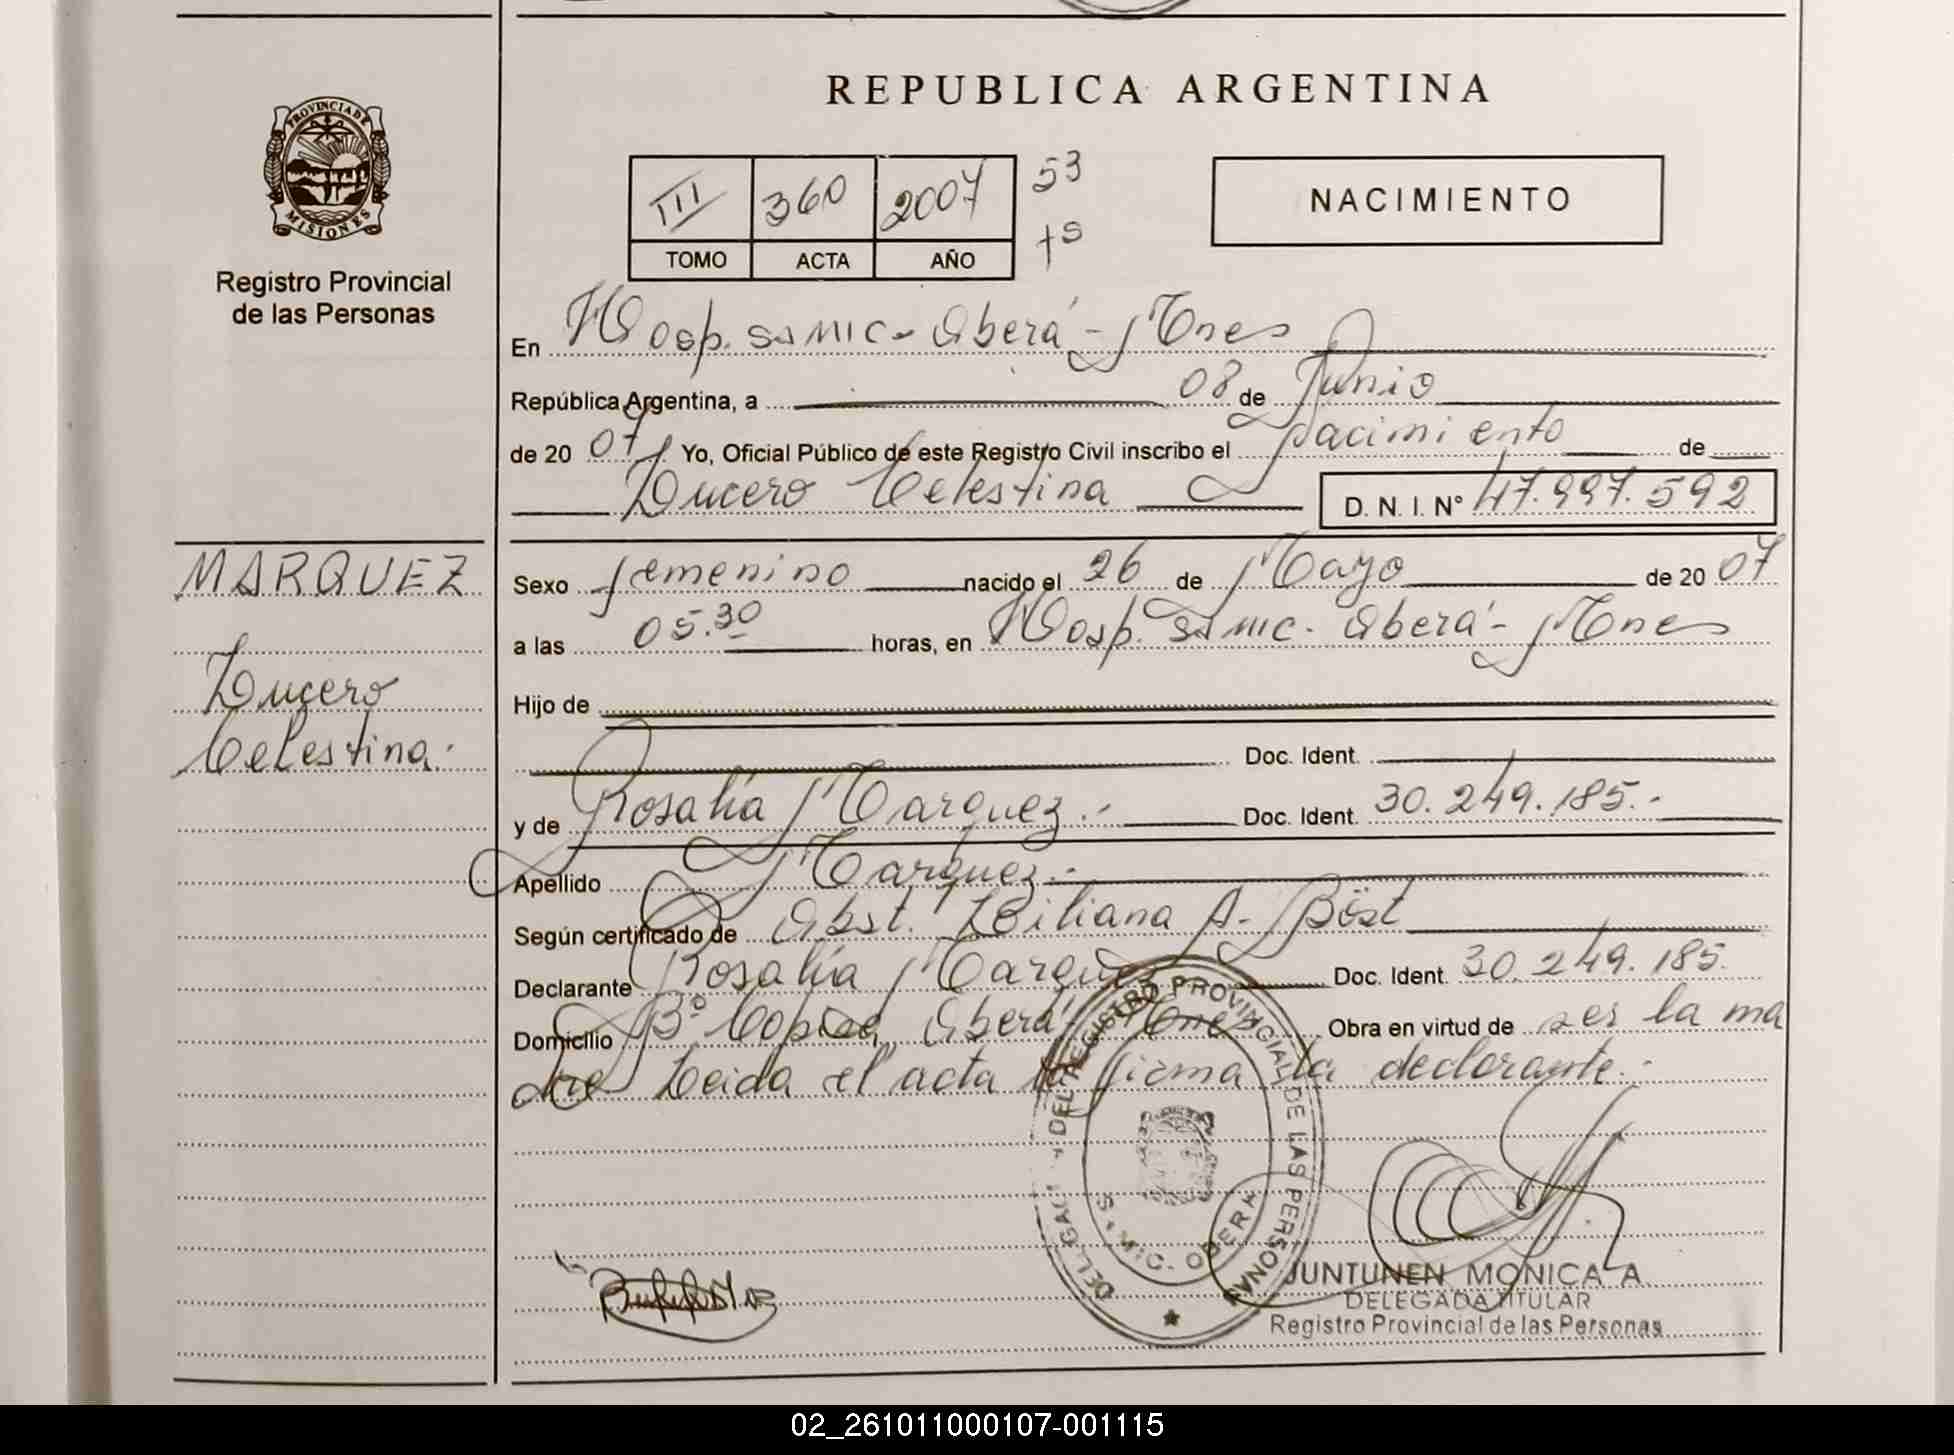 REPUBLICA ARGENTINA
PROVINCIA DE MISIONES
Registro Provincial
de las Personas
III 360 2007 53
TOMO ACTA AÑO
NACIMIENTO
En Hosp. SAMIC - Oberá - Mnes
República Argentina, a 08 de Junio
de 2007 Yo, Oficial Público de este Registro Civil inscribo el nacimiento de
Lucero Celestina D. N. I. N° 47.997.592
MARQUEZ
Lucero
Celestina.
Sexo femenino nacido el 26 de Mayo de 2007
a las 05.30 horas, en Hosp. SAMIC. Oberá - Mnes
Hijo de
Doc. Ident.
y de Rosalía Marquez.- Doc. Ident. 30.249.185.-
Apellido Marquez.-
Según certificado de Obst. Liliana A. Böst
Declarante Rosalía Marquez Doc. Ident. 30.249.185.
Domicilio B° Copisa, Oberá - Mnes Obra en virtud de ser la ma
dre Leida el acta la firma la declarante.-
DELEGAC DEL REGISTRO PROVINCIAL DE LAS PERSONAS
SAMIC. OBERA
JUNTUNEN MONICA A
DELEGADA TITULAR
Registro Provincial de las Personas
02_261011000107-001115